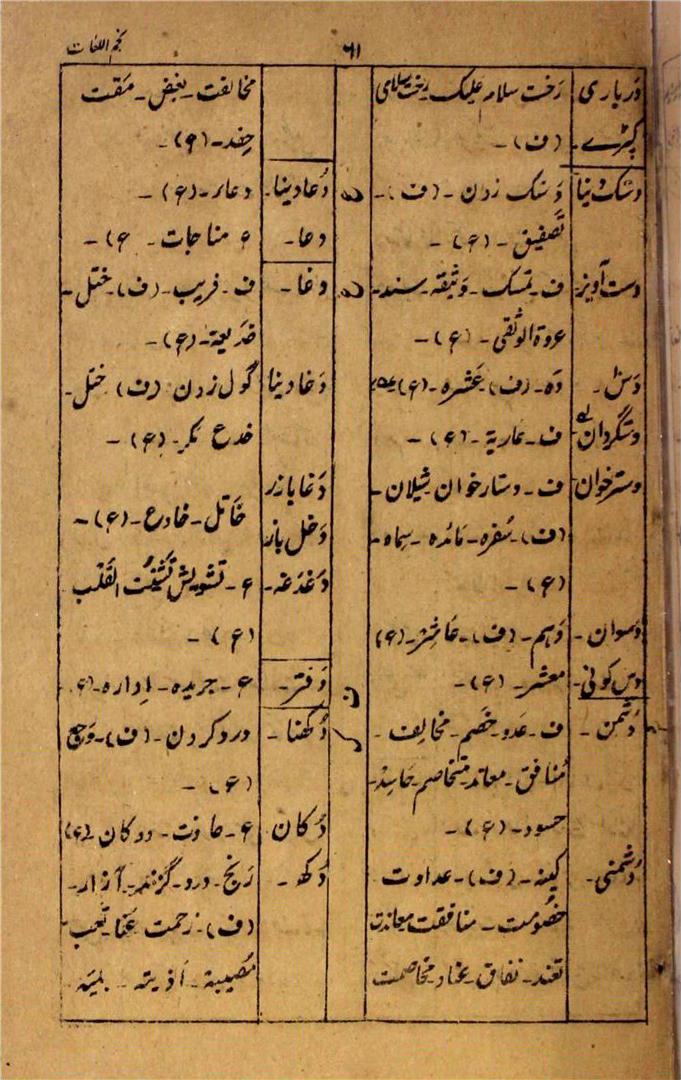 نجم اللغات
٦١
درباری رخت سلام علیک۔ رخت سلامی
کپڑے۔ (ف)۔
دستک دینا دستک زدن۔ (ف)۔
تصفیق۔ (ع)۔
دست آویز۔ ف۔ تمسک۔ وثیقہ۔ سند۔
عروة الوثقی۔ (ع)۔
دس۔ دہ۔ (ف)۔ عشرہ۔ (ع)
دستگردان ف۔ عاریة۔ (ع)۔
دسترخوان ف۔ دستارخوان شیلان۔
(ف)۔ سفرہ۔ مائدہ۔ سماہ۔
(ع)۔
دسواں۔ دہم۔ (ف)۔ عاشر۔ (ع)
دس کونی۔ معشر۔ (ع)۔
دشمن۔ ف۔ عدو۔ خصم۔ مخالف۔
منافق۔ معاند۔ متخاصم۔ حاسد۔
حسود۔ (ع)۔
دشمنی۔ کینہ۔ (ف)۔ عداوت
خصومت۔ منافقت۔ معاندت
تعند۔ نفاق۔ عناد۔ مخاصمت
مخالفت۔ بغض۔ مقت
حقد۔ (ع)۔
ع
دعا دینا۔ دعاء۔ (ع)۔
دعا۔ ع مناجات۔ ع)۔
غ
دغا۔ ف۔ فریب۔ (ف)۔ ختل۔
خدیعة۔ (ع)۔
دغا دینا گول زدن (ف) ختل۔
خدع مکر۔ (ع)۔
دغا باز
دغل باز خاتل۔ خادع۔ (ع)۔
دغدغہ۔ ع۔ تشویش تشتت القلب
(ع)۔
ف
دفتر۔ ع۔ جریدہ۔ ادارہ۔ (ع)۔
ک
دکھنا۔ درد کردن۔ (ف)۔ وجع
(ع)۔
دکان ع۔ حانوت۔ دوکان۔ (ع)
دکھ۔ رنج۔ درد۔ گزند۔ آزار۔
(ف)۔ زحمت عنا تعب۔
مصیبة۔ اذیتہ۔ بلیتہ۔